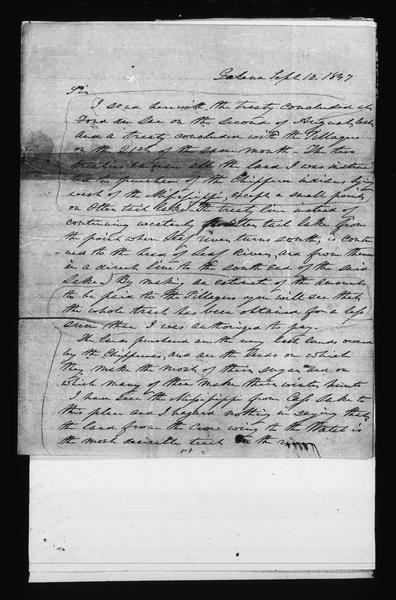 Galena Sept. 10. 1847
Sir
I send herewith the treaty concluded at
Fond du Lac on the second of August, last
and a treaty concluded with the Pillagers
on the 21st of the same month. The two
treaties embrace all the land I was instruc
ted to purchase of the Chippewa indians lying
west of the Mississippi, except a small point
on Otter tail lake. The treaty line instead of
continuing westerly to Otter tail lake from
the point where Leaf river turns south, is contin
ued to the head of Leaf River, and from thence
in a direct line to the south End of the said
Lake. By making an estimate of the amounts
to be paid to the Pillagers you will see that
the whole tract has been obtained for a less
sum than I was authorized to pay.
The lands purchased are the very best lands owned
by the Chippewas, and are the lands on which
they make the most of their sugar and on
which many of them make their winter hunts
I have seen the Mississippi from Cass Lake to
this place and I hazard nothing in saying that
the land from the Crow wing to the Watab is
the most desirable tract on the